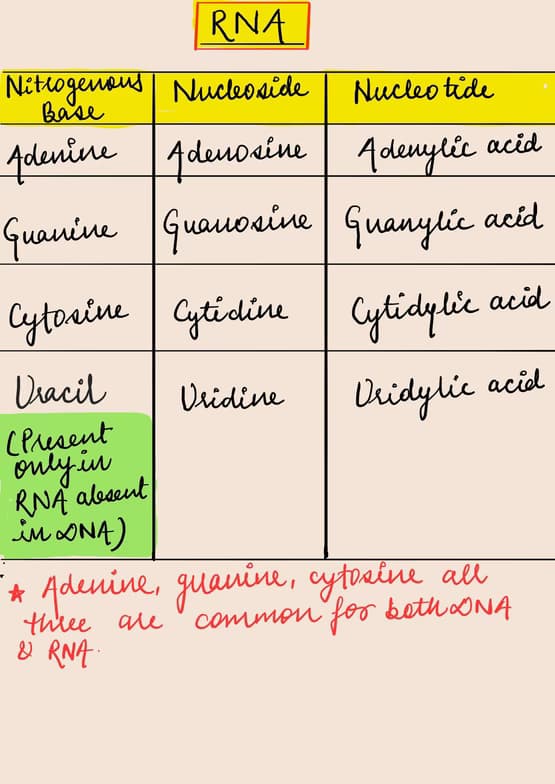 RNA
Nitrogenous Base Nucleoside Nucleotide
Adenine Adenosine Adenylic acid
Guanine Guanosine Guanylic acid
Cytosine Cytidine Cytidylic acid
Uracil Uridine Uridylic acid
(Present
only in
RNA absent
in DNA)
* Adenine, guanine, cytosine all
three are common for both DNA
& RNA.